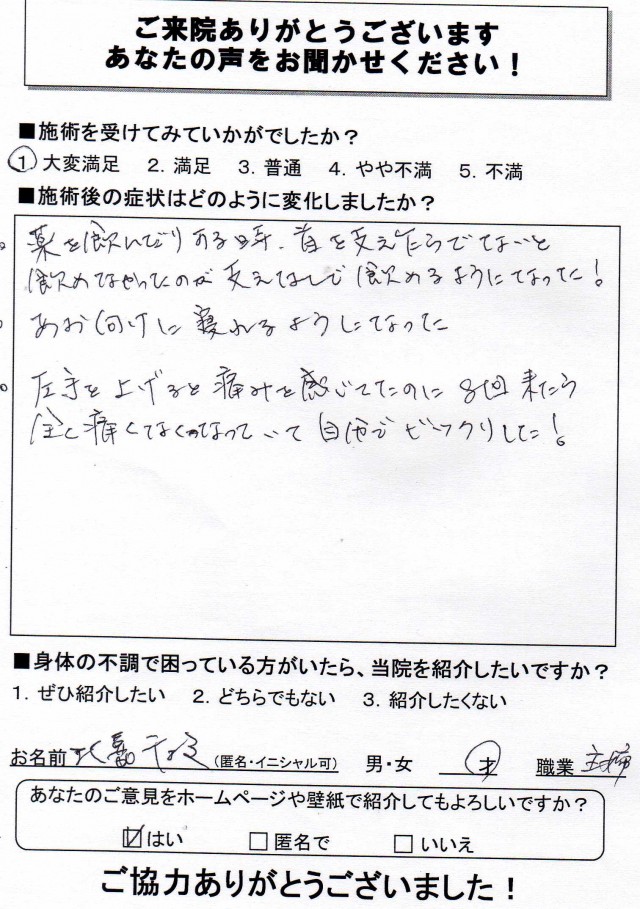 ご来院ありがとうございます
あなたの声をお聞かせください！
■施術を受けてみていかがでしたか？
1. 大変満足 2. 満足 3. 普通 4. やや不満 5. 不満
■施術後の症状はどのように変化しましたか？
薬を飲んだりする時、首を支えたらでないと
飲めてなかったのが支えなしで飲めるようになった！
あお向けに寝れるようになった
左手を上げると痛みを感じてたのに8回来たら
全く痛くなくなっていて自分でビックリした！
■身体の不調で困っている方がいたら、当院を紹介したいですか？
1. ぜひ紹介したい 2. どちらでもない 3. 紹介したくない
お名前 （匿名・イニシャル可） 男・女 才 職業 主婦
あなたのご意見をホームページや壁紙で紹介してもよろしいですか？
☑はい □匿名で □いいえ
ご協力ありがとうございました！